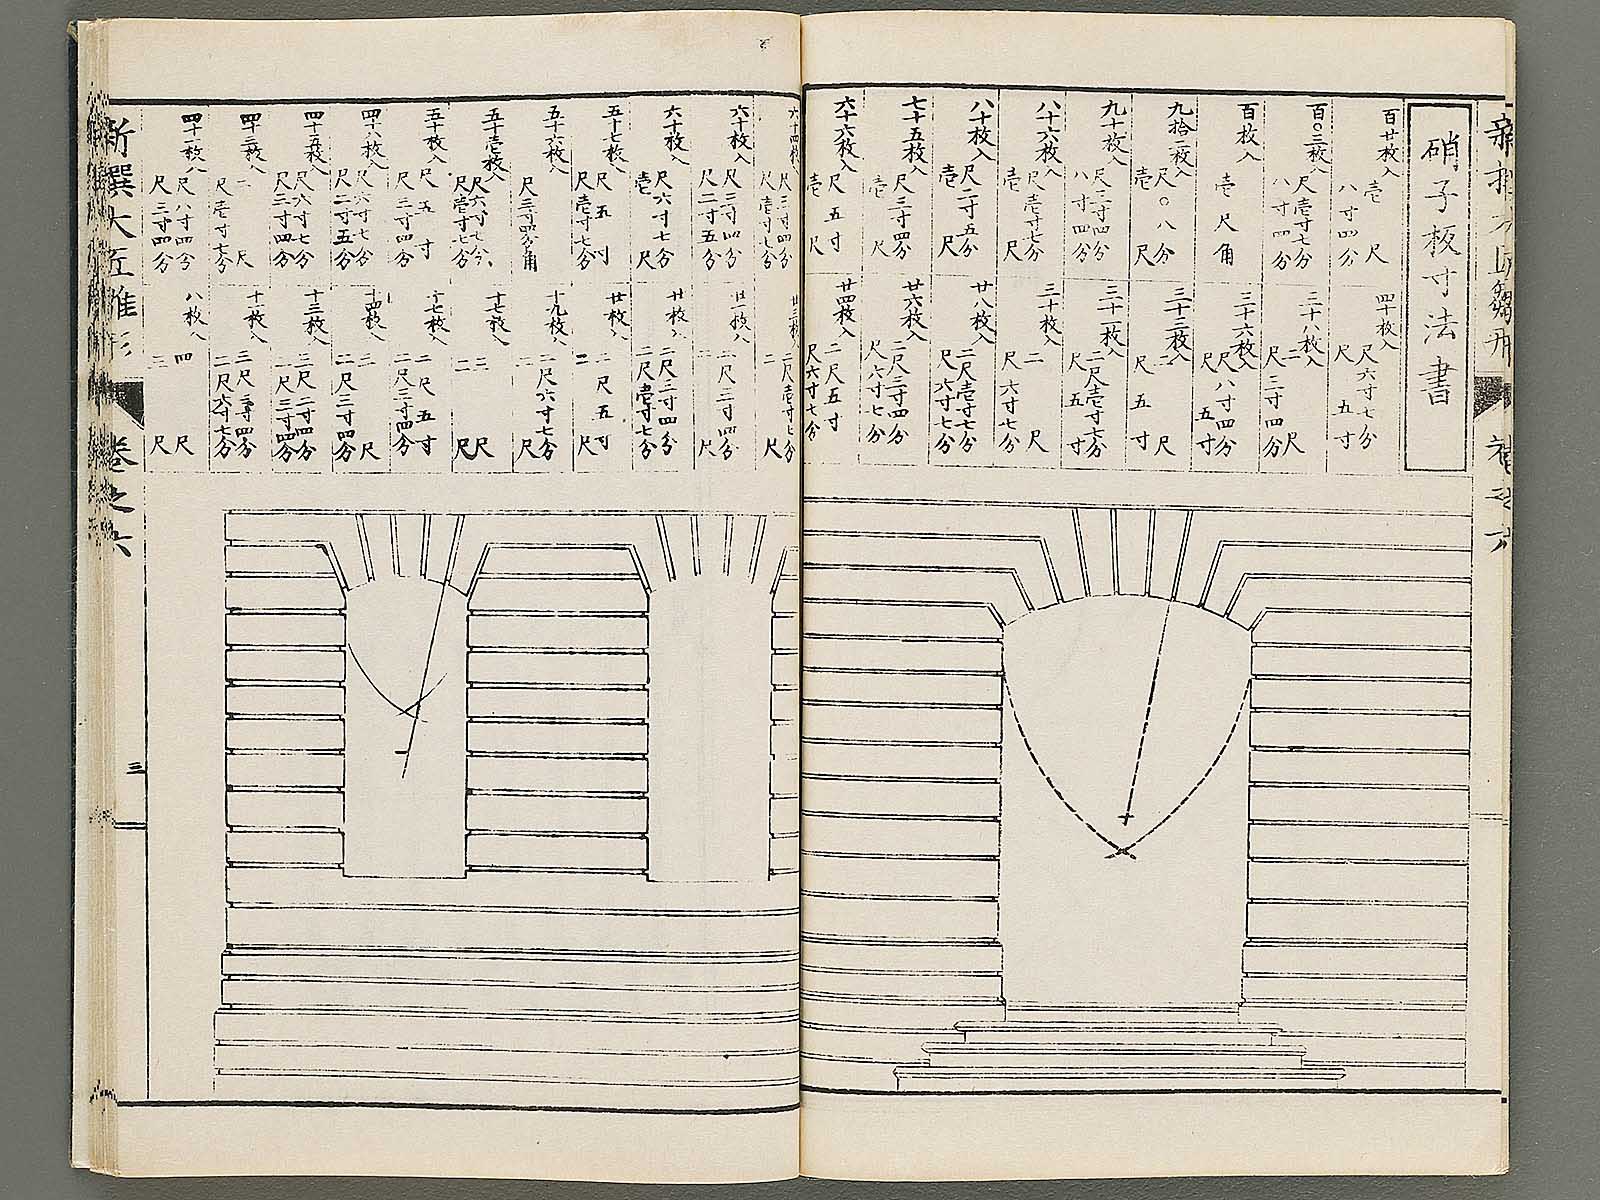 硝子板寸法書
百廿枚入 壱尺 八寸四分
百〇三枚入 尺壱寸七分 八寸四分
百枚入 壱尺角
九拾三枚入 尺〇八分 壱尺
九十枚入 尺二寸四分 八寸四分
八十六枚入 尺壱寸七分 壱尺
八十枚入 尺二寸五分 壱尺
七十五枚入 尺三寸四分 壱尺
六十六枚入 尺五寸 壱尺
四十枚入 尺六寸七分 尺五寸
三十八枚入 二尺 尺三寸四分
三十六枚入 尺八寸四分 尺五寸
三十三枚入 二尺 尺五寸
三十二枚入 二尺壱寸七分 尺五寸
三十枚入 二尺 尺六寸七分
廿八枚入 二尺壱寸七分 尺六寸七分
廿六枚入 二尺三寸四分 尺六寸七分
廿四枚入 二尺五寸 尺六寸七分
六十四枚入 尺三寸四分 尺壱寸七分
六十枚入 尺三寸四分 尺二寸五分
六十枚入 尺六寸七分 壱尺
五十七枚入 尺五寸 尺壱寸七分
五十六枚入 尺三寸四分角
五十壱枚入 尺六寸七分 尺壱寸七分
五十枚入 尺五寸 尺三寸四分
四十八枚入 尺六寸七分 尺二寸五分
四十五枚入 尺六寸七分 尺三寸四分
四十三枚入 二尺 尺壱寸七分
四十一枚入 尺八寸四分 尺三寸四分
廿三枚入 二尺壱寸七分 二尺
廿一枚入 二尺三寸四分 二尺
廿枚入 二尺三寸四分 二尺壱寸七分
廿枚入 二尺五寸 二尺
十九枚入 二尺六寸七分 二尺
十七枚入 三尺 二尺
十七枚入 二尺五寸 二尺三寸四分
十四枚入 三尺 二尺三寸四分
十三枚入 三尺二寸四分 二尺三寸四分
十一枚入 三尺三寸四分 二尺六寸七分
八枚入 四尺 三尺
新撰大匠雛形
巻之六
三